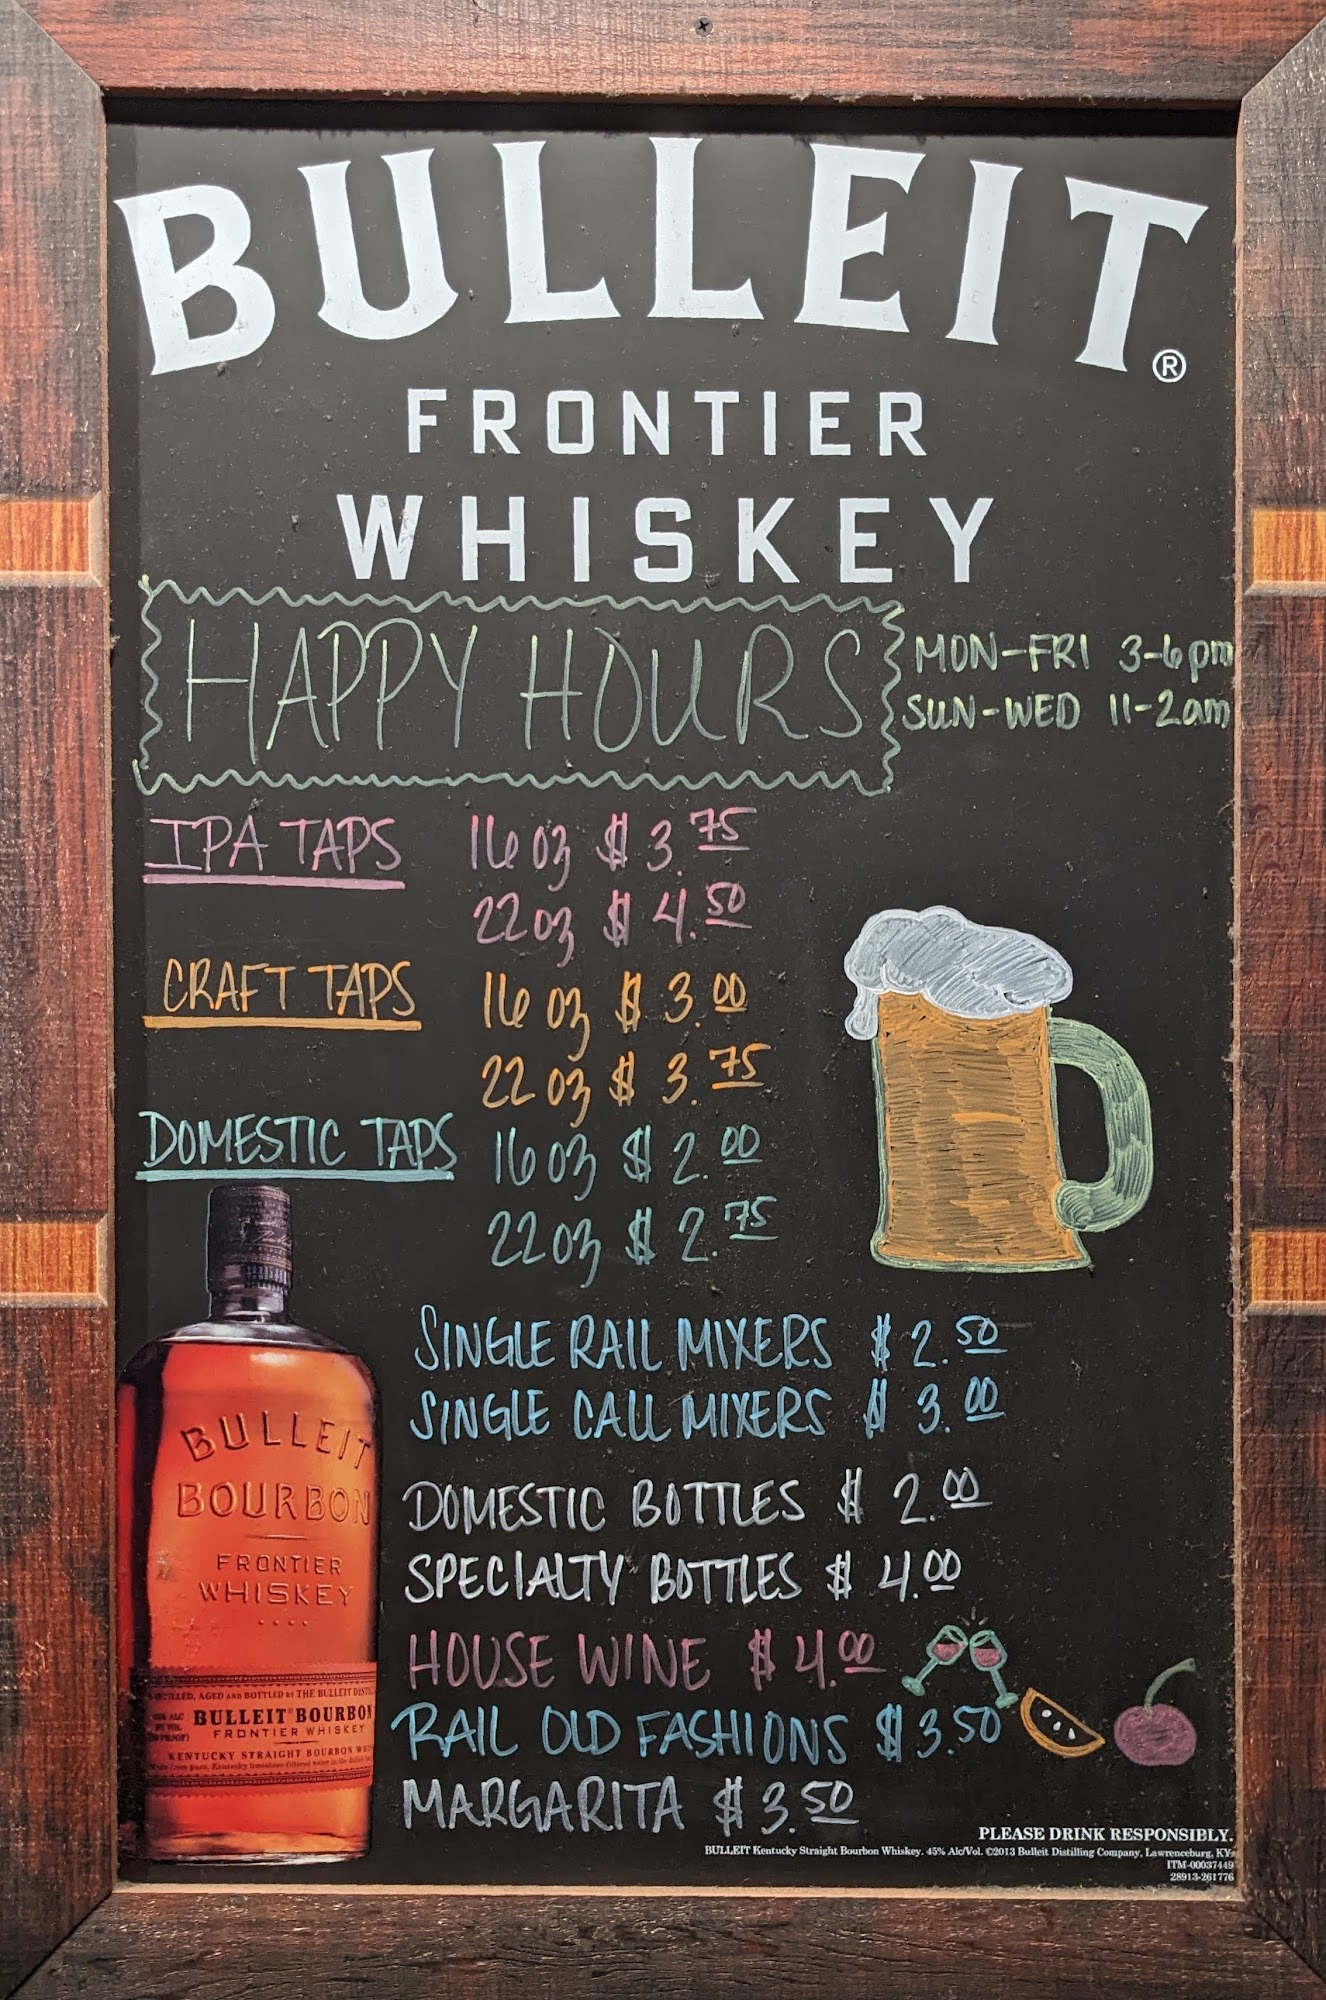 BULLEIT®
FRONTIER
WHISKEY
HAPPY HOURS
MON-FRI 3-6pm
SUN-WED 11-2am
IPA TAPS 16oz $3.75
22oz $4.50
CRAFT TAPS 16oz $3.00
22oz $3.75
DOMESTIC TAPS 16oz $2.00
22oz $2.75
SINGLE RAIL MIXERS $2.50
SINGLE CALL MIXERS $3.00
DOMESTIC BOTTLES $2.00
SPECIALTY BOTTLES $4.00
HOUSE WINE $4.00
RAIL OLD FASHIONS $3.50
MARGARITA $3.50
BULLEIT
BOURBON
FRONTIER
WHISKEY
AGED AND BOTTLED BY THE BULLEIT
BULLEIT BOURBON
FRONTIER WHISKEY
KENTUCKY STRAIGHT BOURBON
PLEASE DRINK RESPONSIBLY.
BULLEIT Kentucky Straight Bourbon Whiskey. 45% Alc/Vol. ©2013 Bulleit Distilling Company, Lawrenceburg, KY.
ITM-00037449
28913-261776